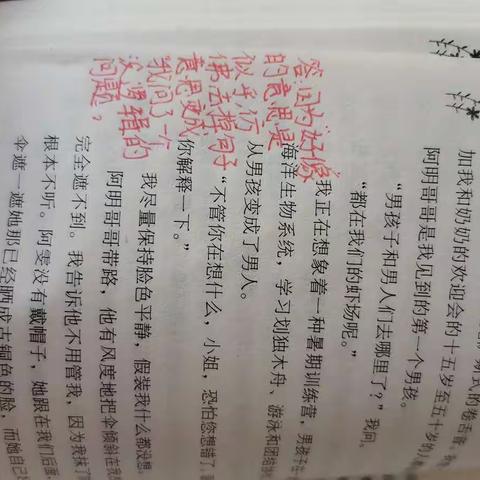 式的卷舌音
加我和奶奶的欢迎会的十五岁至五十岁的
阿明哥哥是我见到的第一个男孩。
“男孩子和男人们去哪里了？”我问。
“都在我们的虾场呢。”
我正在想象着一种暑期训练营，男孩子在
海洋生物系统，学习划独木舟、游泳和团结
从男孩变成了男人。
“不管你在想什么，小姐，恐怕您想错了，
你解释一下。”
我尽量保持脸色平静，假装我什么都没想。
阿明哥哥带路，他有风度地把伞倾斜在我
完全遮不到。我告诉他不用管我，因为我抹了
根本不听。阿雯没有戴帽子，她跟在我们后面
伞遮一遮她那已经晒成古铜色的脸，而她自己
答:因为“好像”
的意思是
似乎,仿
佛去掉句子
意思变成
“我问了一个
没逻辑的
问题?